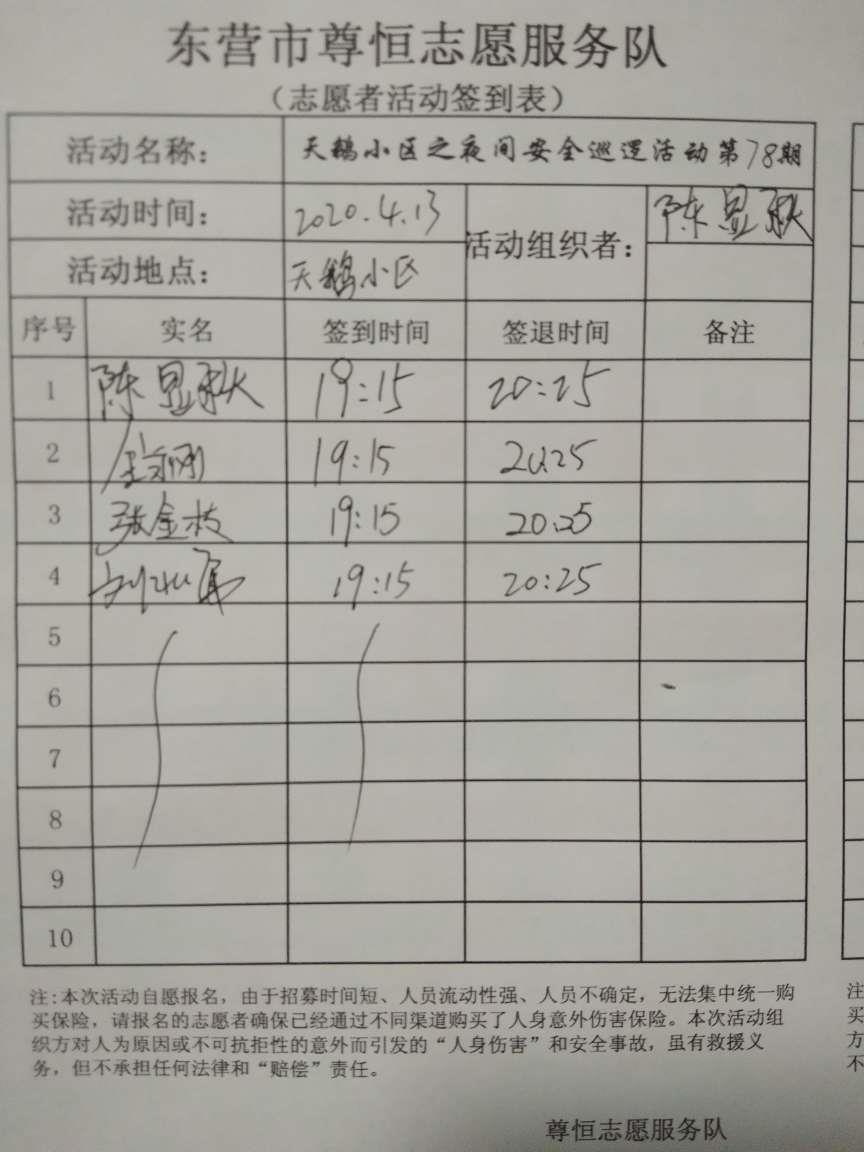 东营市尊恒志愿服务队
（志愿者活动签到表）
活动名称： 天鹅小区之夜间安全巡逻活动第78期
活动时间： 2020.4.13 活动组织者： 陈显秋
活动地点： 天鹅小区
序号 实名 签到时间 签退时间 备注
1 陈显秋 19:15 20:25
2 19:15 20:25
3 张金枝 19:15 20:25
4 19:15 20:25
5
6
7
8
9
10
注:本次活动自愿报名，由于招募时间短、人员流动性强、人员不确定，无法集中统一购
买保险，请报名的志愿者确保已经通过不同渠道购买了人身意外伤害保险。本次活动组
织方对人为原因或不可抗拒性的意外而引发的“人身伤害”和安全事故，虽有救援义
务，但不承担任何法律和“赔偿”责任。
尊恒志愿服务队
注
买
方
不